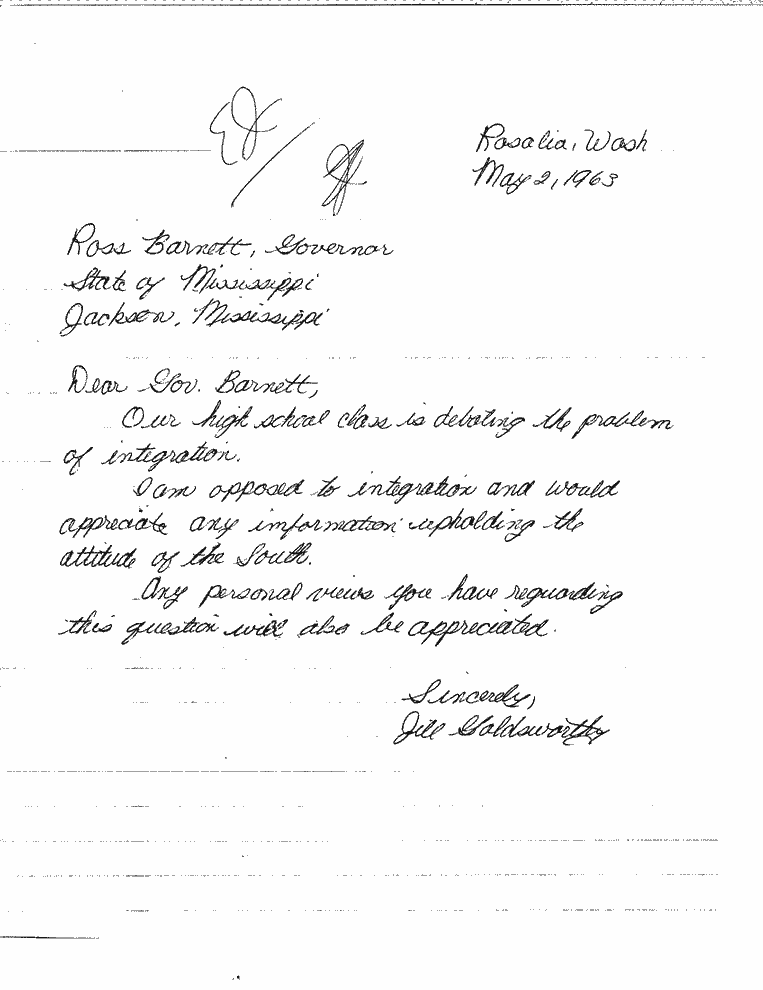 Rosalia, Wash
May 2, 1963
Ross Barnett, Governor
State of Mississippi
Jackson, Mississippi
Dear Gov. Barnett,
Our high school class is debating the problem
of integration.
I am opposed to integration and would
appreciate any information upholding the
attitude of the South.
Any personal views you have reguarding
this question will also be appreciated.
Sincerely,
Jill Goldsworthy